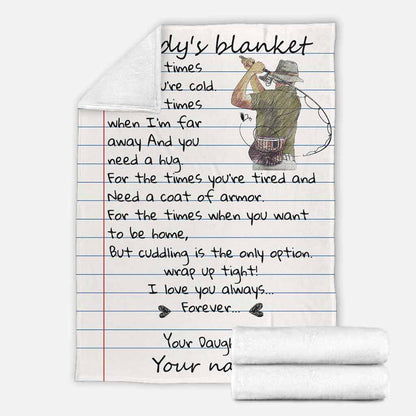 dy's blanket
times
you're cold.
times
when I'm far
away And you
need a hug.
For the times you're tired and
Need a coat of armor.
For the times when you want
to be home,
But cuddling is the only option.
wrap up tight!
I love you always...
Forever...
Your Daugh
Your na